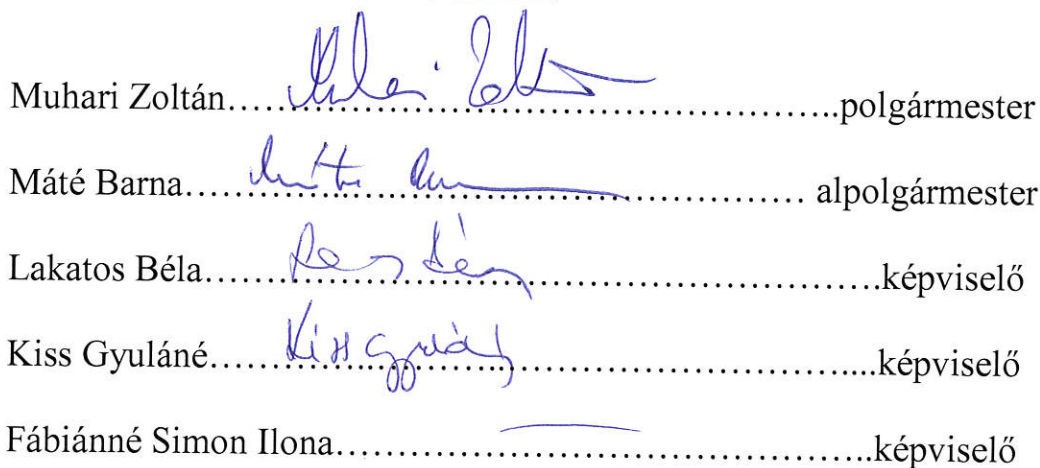 Muhari Zoltán..... Muhari Zoltán ..........polgármester
Máté Barna..... Máté Barna .......... alpolgármester
Lakatos Béla..... ..........képviselő
Kiss Gyuláné..... Kiss Gyuláné ..........képviselő
Fábiánné Simon Ilona..........képviselő